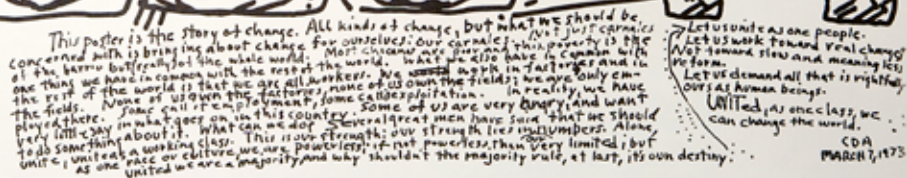 This poster is the story of change. All kinds of change, but what we should be
concerned with is bringing about change for ourselves: our carnales. Not just carnales
of the barrio but really of the whole world. Most chicanos this poverty is the
one thing we have in common with the rest of the world. What we also have in common with
the rest of the world is that we are all workers. We work in factories and in
the fields. None of us own the factories, none of us own the fields; we are only em-
ployed there. Some call it employment, some call exploitation. In reality, we have
very little say in what goes on, in this country. Some of us are very angry, and want
to do something about it. What can we do? Several great men have said that we should
unite, unite as a working class. This is our strength: our strength lies in our numbers. Alone,
as one race or culture, we are powerless; if not powerless, than very limited; but
united we are a majority, and why shouldn't the majority rule, at last, it's own destiny.
Let us unite as one people.
Let us work toward real change
Not toward slow and meaningless
reform.
Let us demand all that is rightfully
ours as human beings.
UNITed, as one class, we
can change the world.
CDA
MARCH 7, 1973